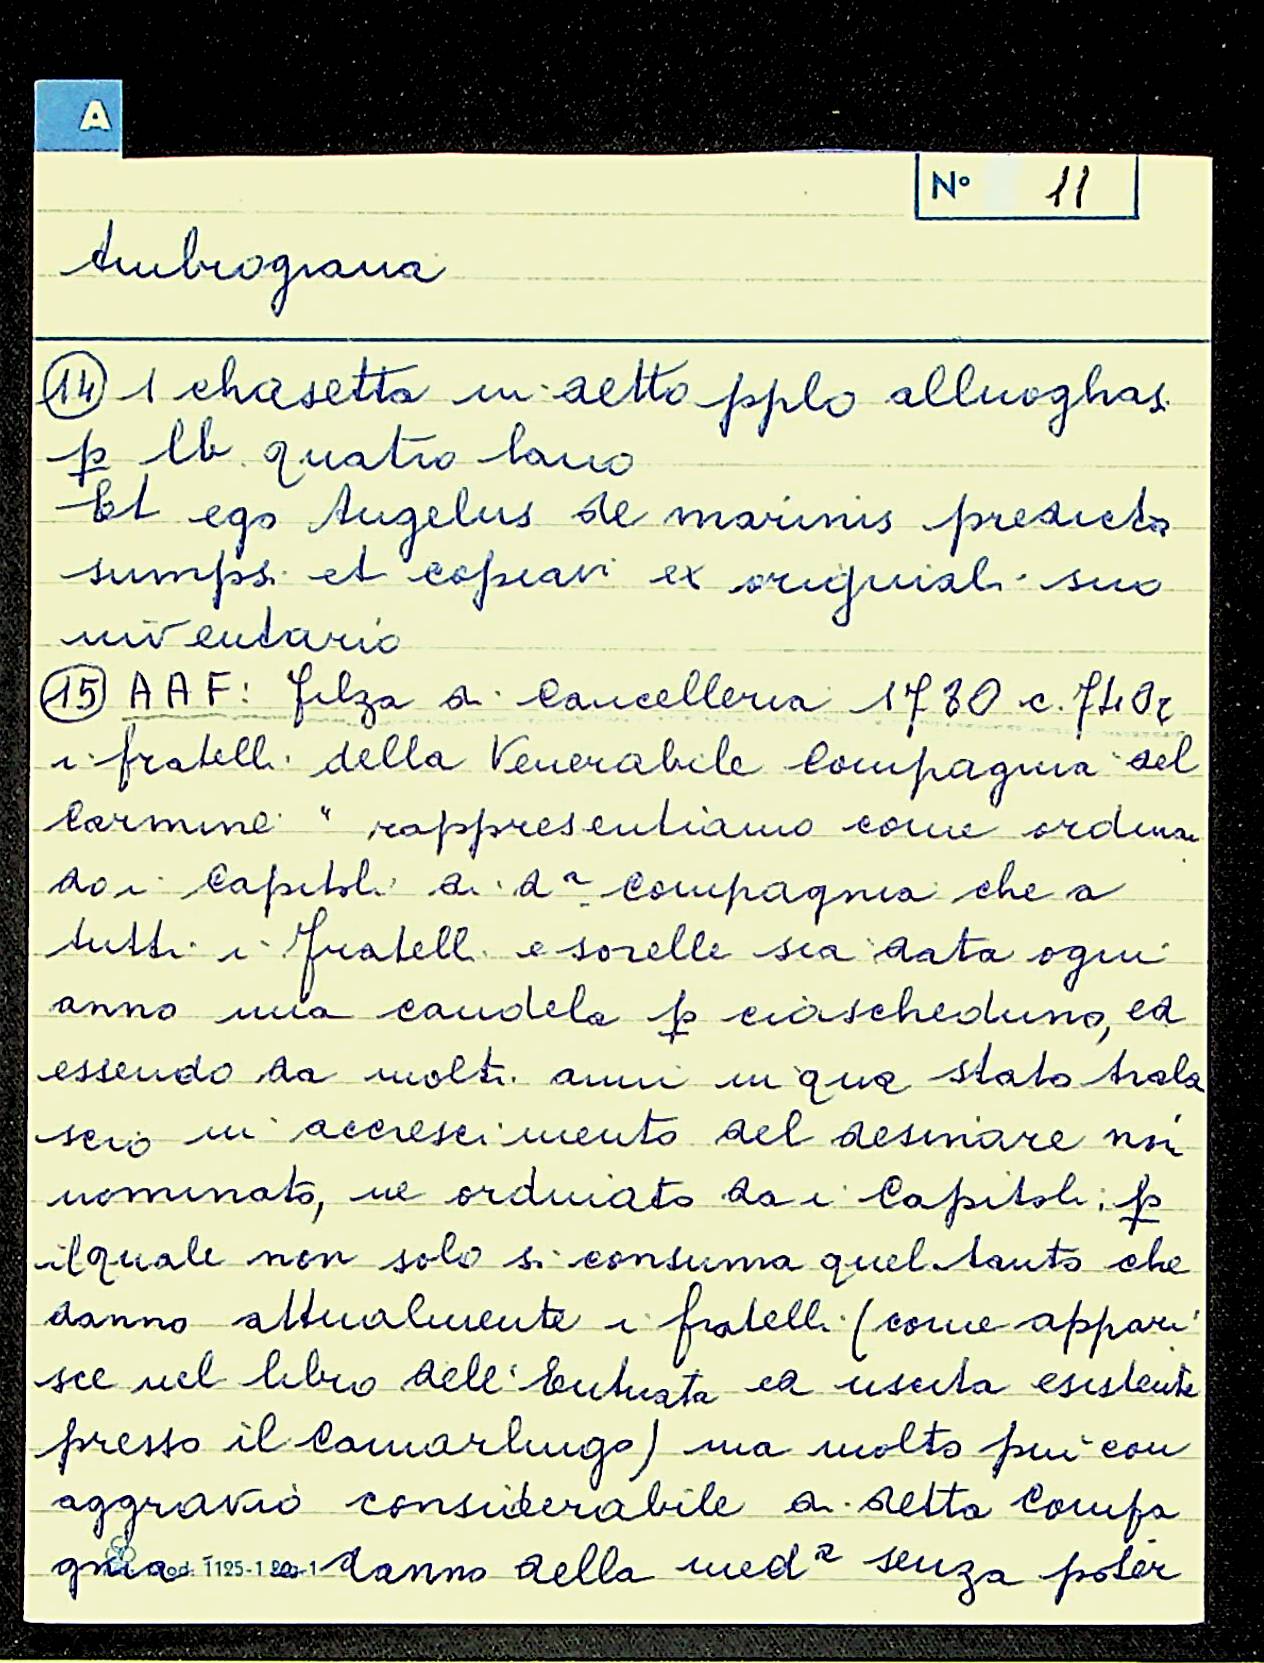 A
N° 11
Ambrogiana
14 1 chasetta in detto pplo alluoghasi
p lb. quatro lanno
Et ego Angelus de marinis predicta
sumpsi et copiavi ex originiali suo
inventario
15 AAF: filza di Cancelleria 1730 c.
i fratelli della Venerabile Compagnia del
Carmine " rappresentiamo come ordinan
do i Capitoli di da Compagnia che a
tutti i fratelli e sorelle sia data ogni
anno una candela p ciascheduno, ed
essendo da molti anni in qua stato trala
scio in accrescimento del desinare non
nominato, ne ordinato da i Capitoli; p
il quale non solo si consuma quel tanto che
danno attualmente i fratelli (come appari
sce nel libro dell'Entrata ed uscita esistente
presso il Camarlingo) ma molto più con
aggravio considerabile di detta Compa
gnia danno della meda senza poter
1125-1